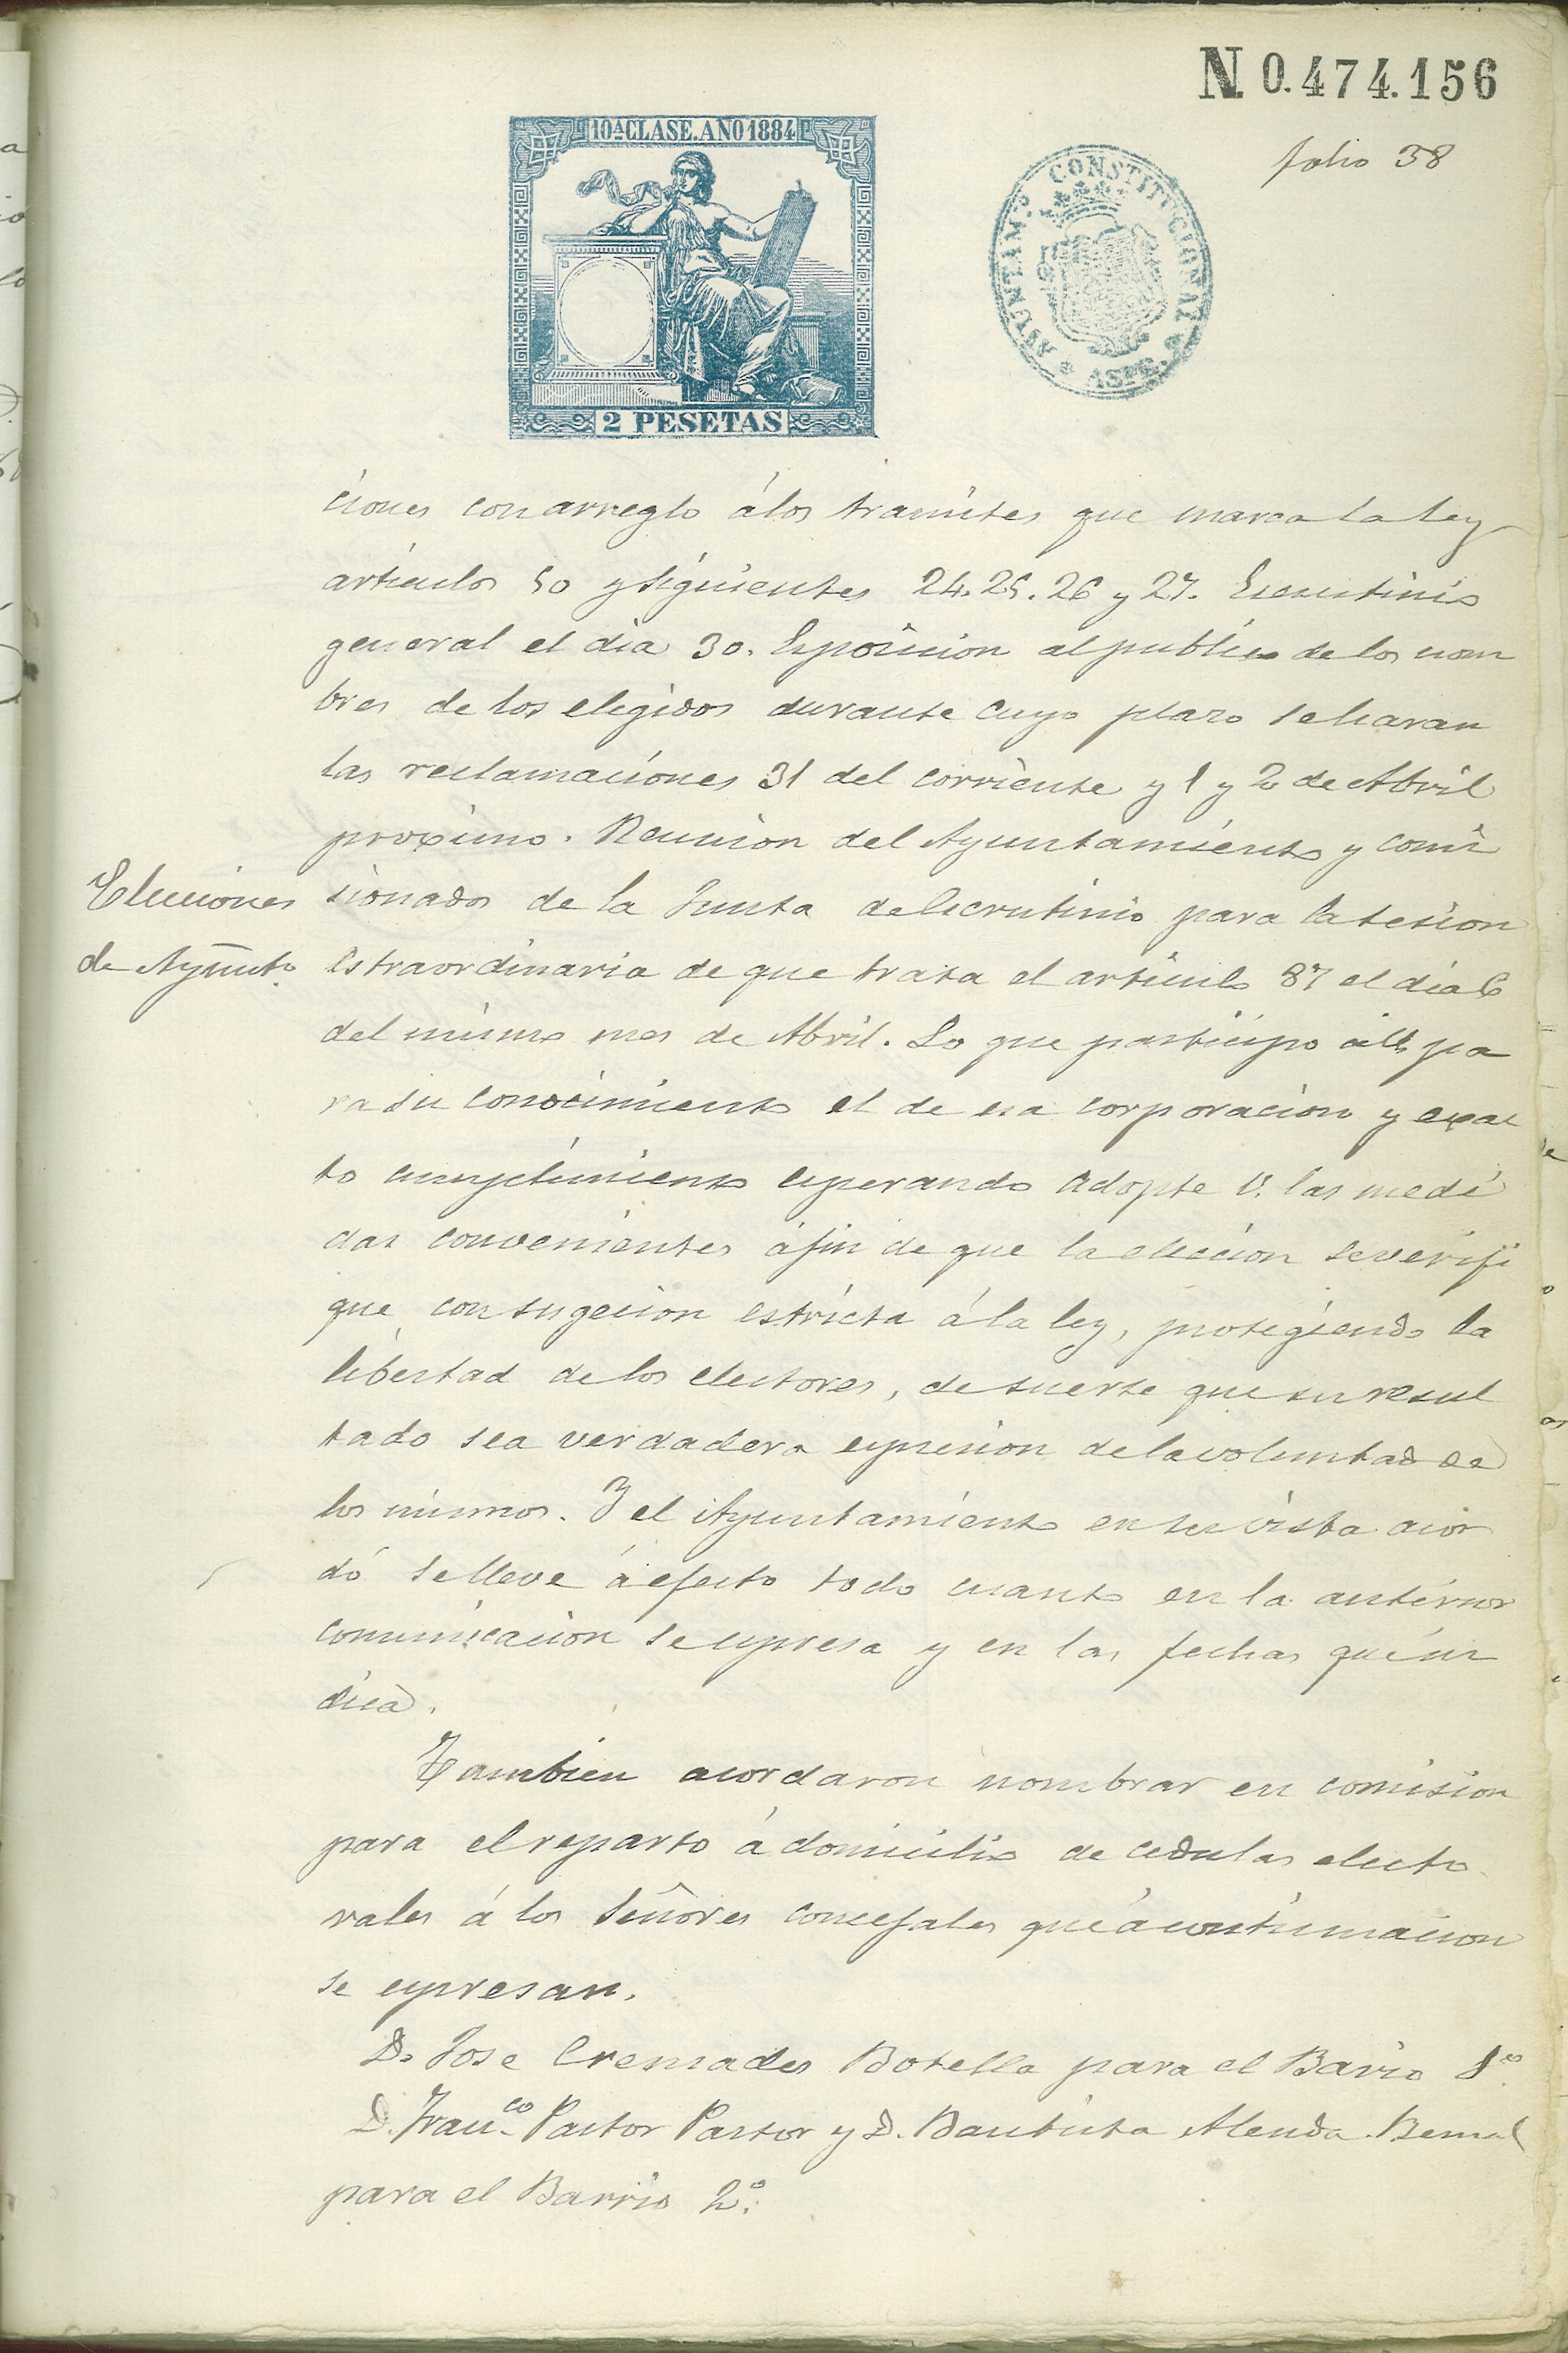 N. 0.474.156
folio 38
10ª CLASE. AÑO 1884
2 PESETAS
AYUNTAM.º CONSTITUCIONAL
ASPE
ciones con arreglo á los tramites que marca la ley
articulos 50 y siguientes 24. 25. 26 y 27. Escrutinio
general el dia 30. Esposicion al publico de los nom
bres de los elegidos durante cuyo plazo se haran
las reclamaciones 31 del corriente y 1 y 2 de Abril
proximo. Reunion del Ayuntamiento y comi
Elecciones
de Ayunto.
sionados de la Junta de escrutinio para la sesion
estraordinaria de que trata el articulo 87 el dia 6
del mismo mes de Abril. Lo que participo á V. pa
ra su conocimiento el de esa corporacion y exac
to cumplimiento esperando adopte V. las medi
das convenientes á fin de que la eleccion se verifi
que con sugecion estricta á la ley, protegiendo la
libertad de los electores, de suerte que su resul
tado sea verdadera espresion de la voluntad de
los mismos. Y el Ayuntamiento en su vista acor
dó se lleve á efecto todo cuanto en la anterior
comunicacion se espresa y en las fechas que in
dica.
Tambien acordaron nombrar en comision
para el reparto á domicilio de cedulas electo
rales á los Señores concejales que á continuacion
se espresan.
D. Jose Cremades Botella para el Barrio 1º.
D. Fran.co Pastor Pastor y D. Bautista Alenda Bernal
para el Barrio 2º.